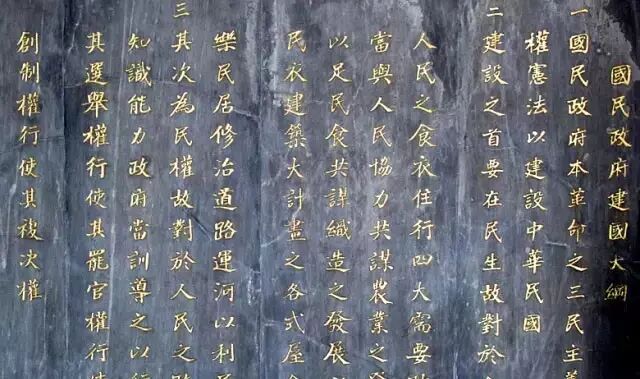 國民政府建國大綱
一國民政府本革命之三民主
權憲法以建設中華民國
二建設之首要在民生故對於
人民之食衣住行四大需要
當與人民協力共謀農業之發
以足民食共謀織造之發展以
民衣建築大計畫之各式屋
樂民居修治道路運河以利民
三其次為民權故對於人民之政
知識能力政府當訓導之以行
其選舉權行使其罷官權行使
創制權行使其複决權